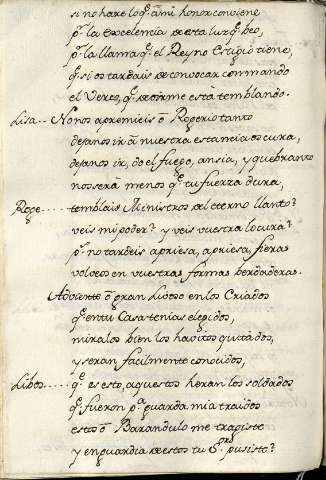 si no hare lo q̃. a mi honor conviene
pr. la excelencia de esta luz q̃. veo,
pr. la llama q̃. el Reyno Estigio tiene,
q̃. si os tardais de convocar con mando
el Verco, q̃. de oirme està temblando.
Lisa... No nos apremieis ô Rogerio tanto
dejanos ir â nuestra estancia oscura,
dejanos ir, do el fuego, ansia, y quebranto
nos serà menos q̃. tu fuerza dura,
Roge.... temblais Ministros del eterno llanto?
veis mi poder? y veis vuestra locura?
pr. no tardeis apriesa, apriesa, fieras
volveos en vuestras formas berdaderas.
Advierte ô gran Lidoso en los Criados
q̃. en tu Casa tenias elegidos,
miralos bien los havitos quitados,
y seran facilmente conocidos,
Lidos.... q̃. es esto, aquestos heran los soldados
q̃. fueron pa. guarda mia traidos
esto ô Barandulo me tragiste
y en guardia de estos tu pusiste?